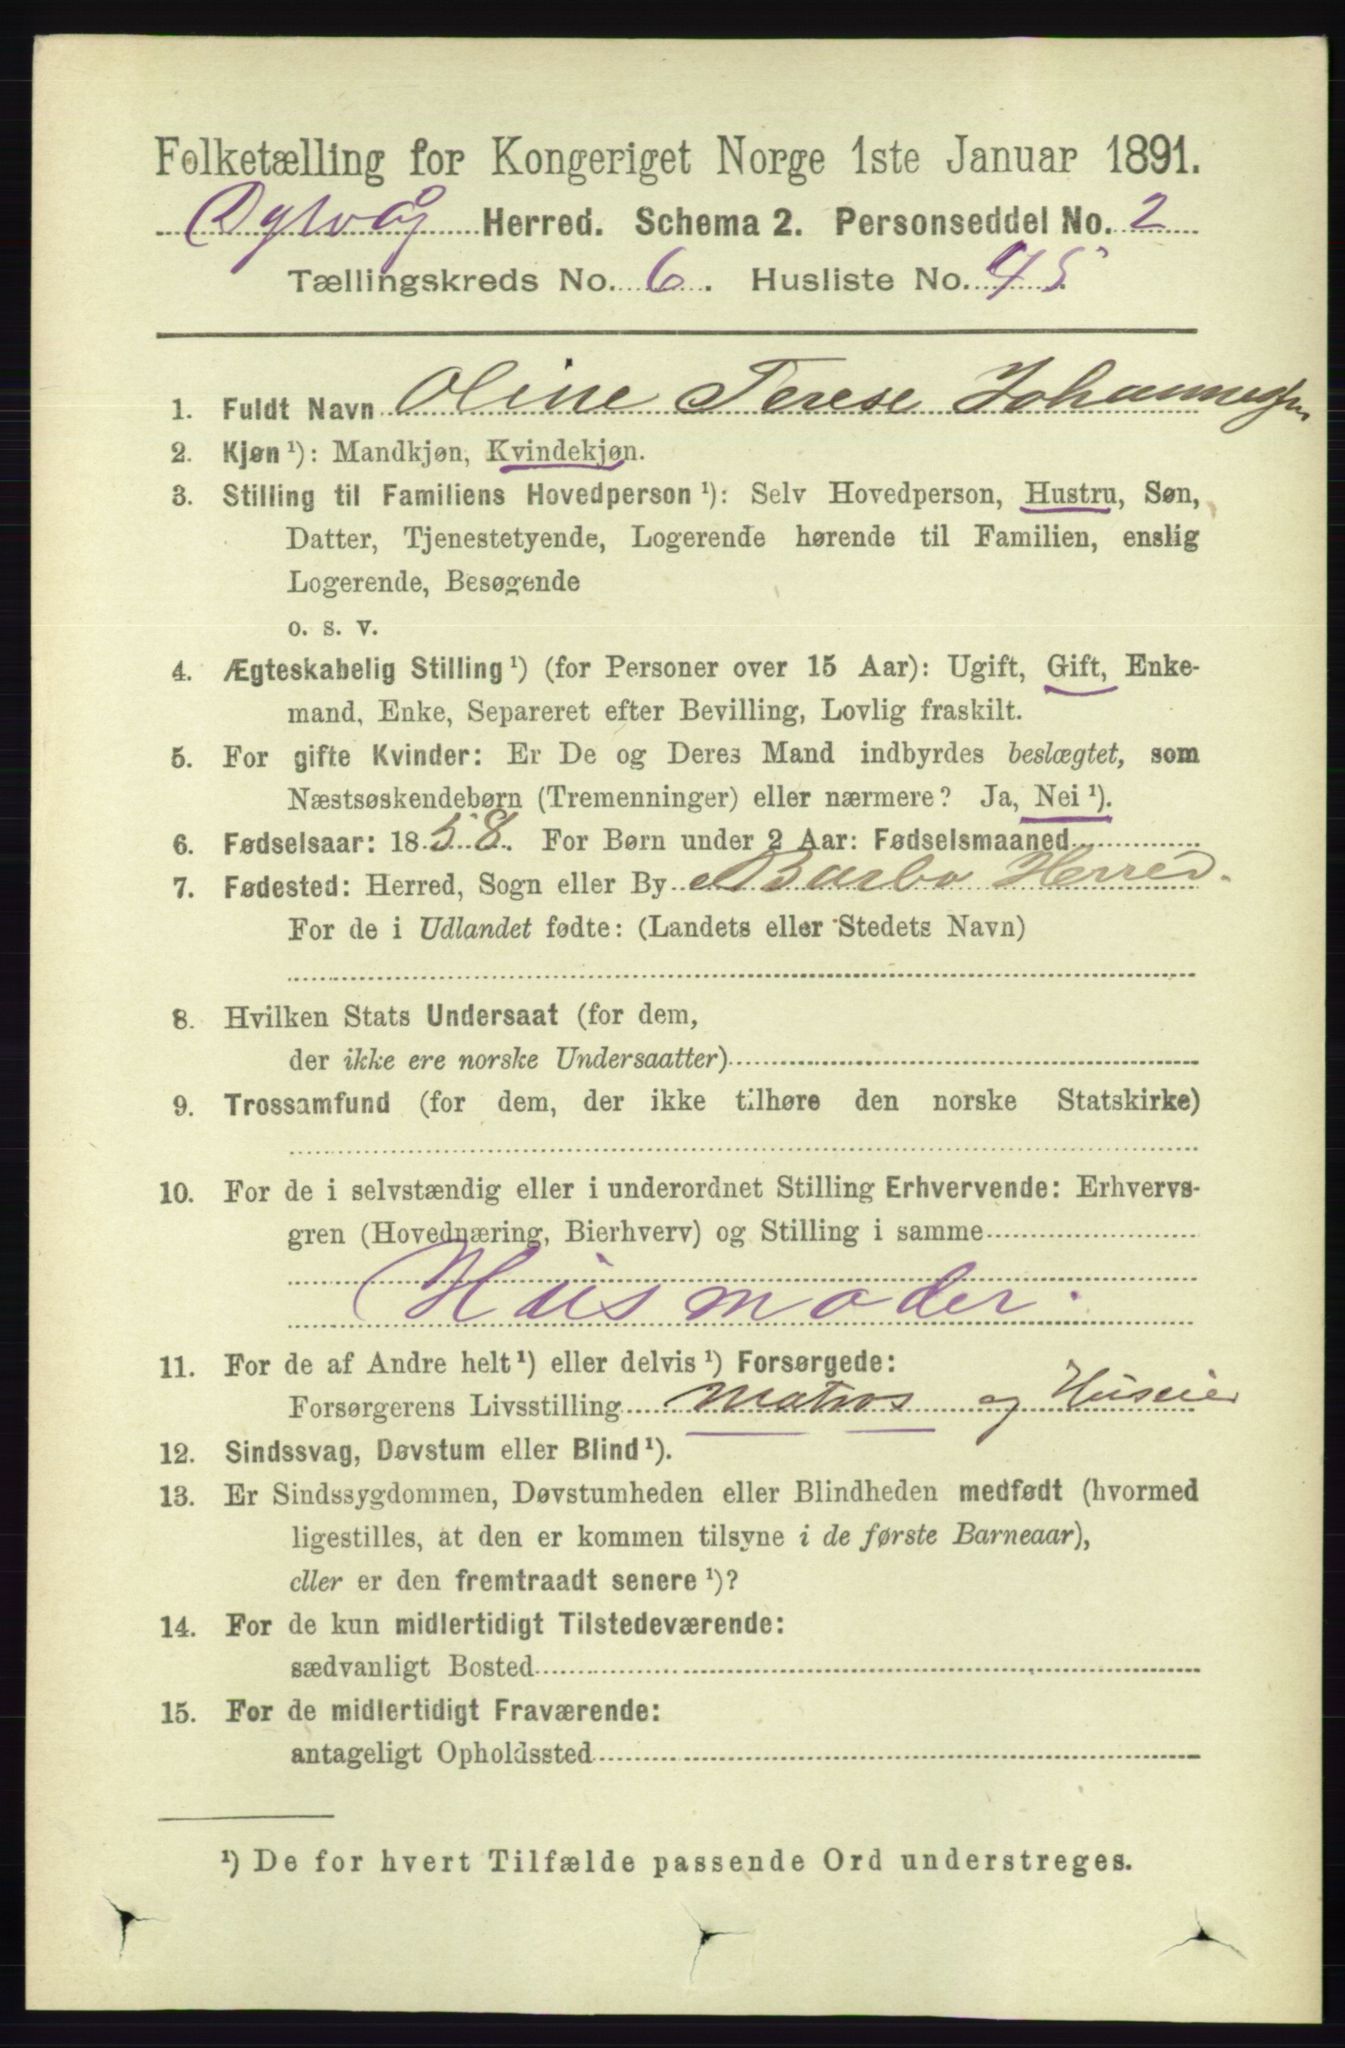 Folketælling for Kongeriget Norge 1ste Januar 1891.
Dyvåg Herred. Schema 2. Personseddel No. 2
Tællingskreds No. 6. Husliste No. 45.
1. Fuldt Navn Oline Terese Johannesen
2. Kjøn¹): Mandkjøn, Kvindekjøn.
3. Stilling til Familiens Hovedperson¹): Selv Hovedperson, Hustru, Søn,
Datter, Tjenestetyende, Logerende hørende til Familien, enslig
Logerende, Besøgende
o. s. v.
4. Ægteskabelig Stilling¹) (for Personer over 15 Aar): Ugift, Gift, Enke-
mand, Enke, Separeret efter Bevilling, Lovlig fraskilt.
5. For gifte Kvinder: Er De og Deres Mand indbyrdes beslægtet, som
Næstsøskendebørn (Tremenninger) eller nærmere? Ja, Nei¹).
6. Fødselsaar: 1858. For Børn under 2 Aar: Fødselsmaaned
7. Fødested: Herred, Sogn eller By Barbo Herred.
For de i Udlandet fødte: (Landets eller Stedets Navn)
8. Hvilken Stats Undersaat (for dem,
der ikke ere norske Undersaatter)
9. Trossamfund (for dem, der ikke tilhøre den norske Statskirke)
10. For de i selvstændig eller i underordnet Stilling Erhvervende: Erhvervs-
gren (Hovednæring, Bierhverv) og Stilling i samme
Husmoder.
11. For de af Andre helt¹) eller delvis¹) Forsørgede:
Forsørgerens Livsstilling Matros og Huseier
12. Sindssvag, Døvstum eller Blind¹).
13. Er Sindssygdommen, Døvstumheden eller Blindheden medfødt (hvormed
ligestilles, at den er kommen tilsyne i de første Barneaar),
eller er den fremtraadt senere¹)?
14. For de kun midlertidigt Tilstedeværende:
sædvanligt Bosted
15. For de midlertidigt Fraværende:
antageligt Opholdssted
¹) De for hvert Tilfælde passende Ord understreges.